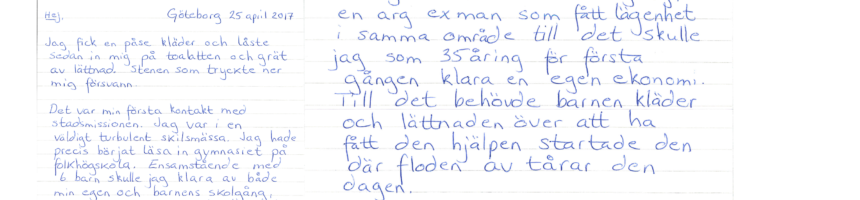 Hej. Göteborg 25 april 2017
Jag fick en påse kläder och låste
sedan in mig på toaletten och grät
av lättnad. Stenen som tryckte ner
mig försvann.
Det var min första kontakt med
stadsmissionen. Jag var i en
väldigt turbulent skilsmässa. Jag hade
precis börjat läsa in gymnasiet på
folkhögskola. Ensamstående med
6 barn skulle jag klara av både
min egen och barnens skolgång,
en arg exman som fått lägenhet
i samma område till det skulle
jag som 35åring för första
gången klara en egen ekonomi.
Till det behövde barnen kläder
och lättnaden över att ha
fått den hjälpen startade den
där floden av tårar den
dagen.